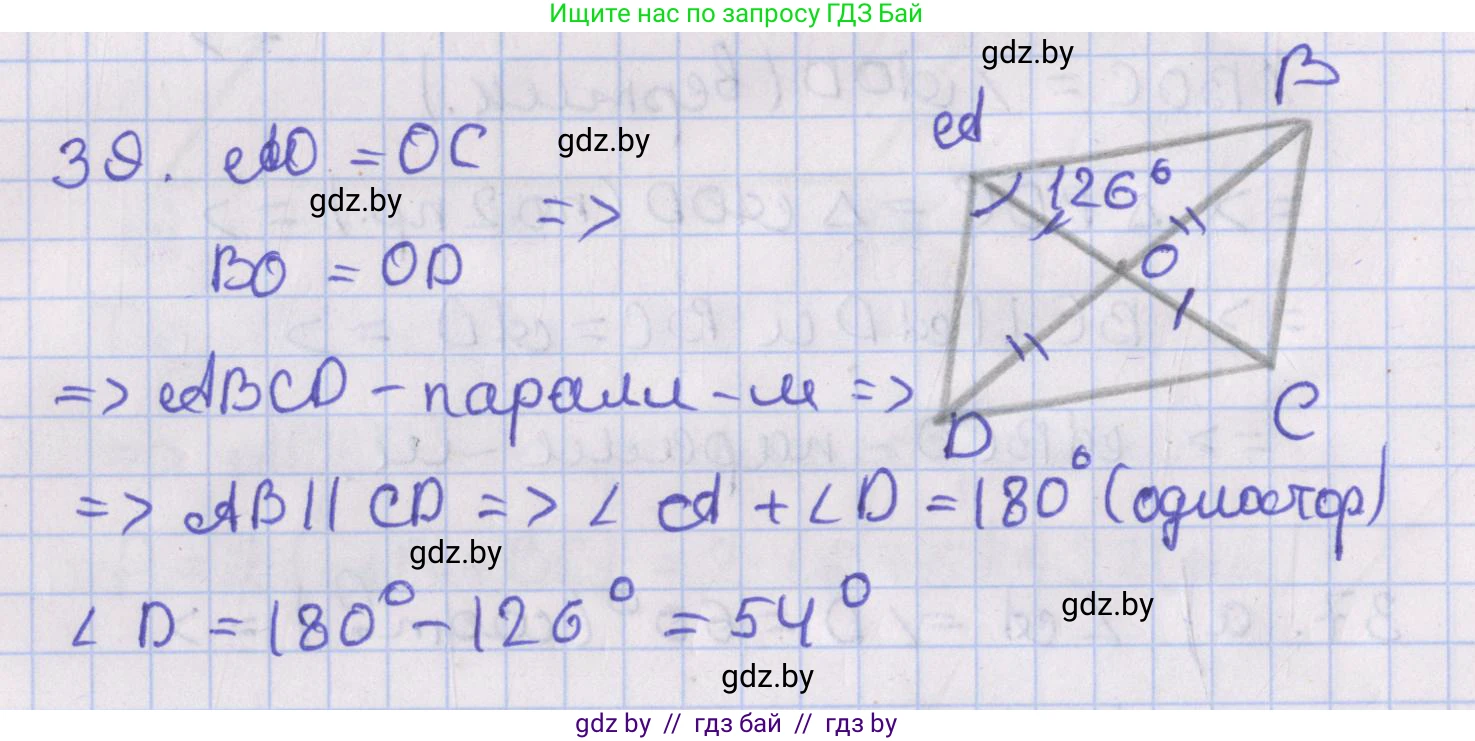 Ищите нас по запросу ГДЗ Бай
gdz.by
B
A
39. AO = OC
gdz.by
126°
gdz.by
=>
O
BO = OD
=> ABCD - паралл-м =>
D
C
=> AB || CD => ∠A + ∠D = 180° (одностор)
gdz.by
∠D = 180° - 126° = 54°
gdz.by
gdz.by
gdz.by // гдз бай // гдз by